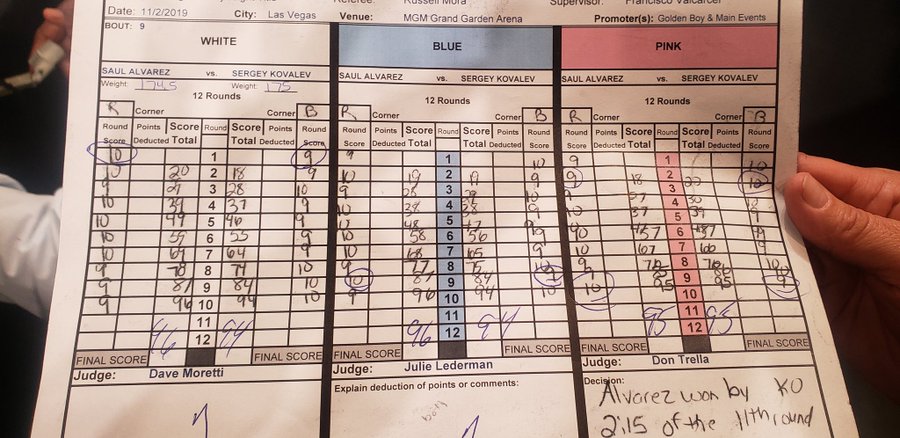 Referee: Russell Mora Supervisor: Francisco Valcarcel
Date: 11/2/2019 City: Las Vegas Venue: MGM Grand Garden Arena Promoter(s): Golden Boy & Main Events
BOUT: 9
WHITE BLUE PINK
SAUL ALVAREZ vs. SERGEY KOVALEV SAUL ALVAREZ vs. SERGEY KOVALEV SAUL ALVAREZ vs. SERGEY KOVALEV
Weight: 174.5 Weight: 175
12 Rounds 12 Rounds 12 Rounds
R Corner Corner B R Corner Corner B R Corner Corner B
Round Points Score Round Score Points Round Round Points Score Round Score Points Round Round Points Score Round Score Points Round
Score Deducted Total Total Deducted Score Score Deducted Total Total Deducted Score Score Deducted Total Total Deducted Score
10 1 9 9 1 10 9 1 10
10 20 2 18 9 10 19 2 19 9 9 18 2 20 10
9 3 28 10 9 28 3 9 3
10 39 4 37 9 10 38 4 38 9 10 37 4 39 9
10 5 46 9 10 48 5 9 5
10 59 6 55 9 10 58 6 56 9 10 6 9
10 69 7 64 9 10 68 7 65 9 10 67 7 66 9
9 78 8 74 10 9 77 8 75 10 9 76 8 76 10
9 87 9 84 10 10 87 9 84 9 9 9
9 96 10 94 10 9 96 10 94 10 10 95 10 95 9
11 11 11
96 12 94 96 12 94 95 12 95
FINAL SCORE FINAL SCORE FINAL SCORE FINAL SCORE FINAL SCORE FINAL SCORE
Judge: Dave Moretti Judge: Julie Lederman Judge: Don Trella
Explain deduction of points or comments: Decision:
Alvarez won by KO
2:15 of the 11th round